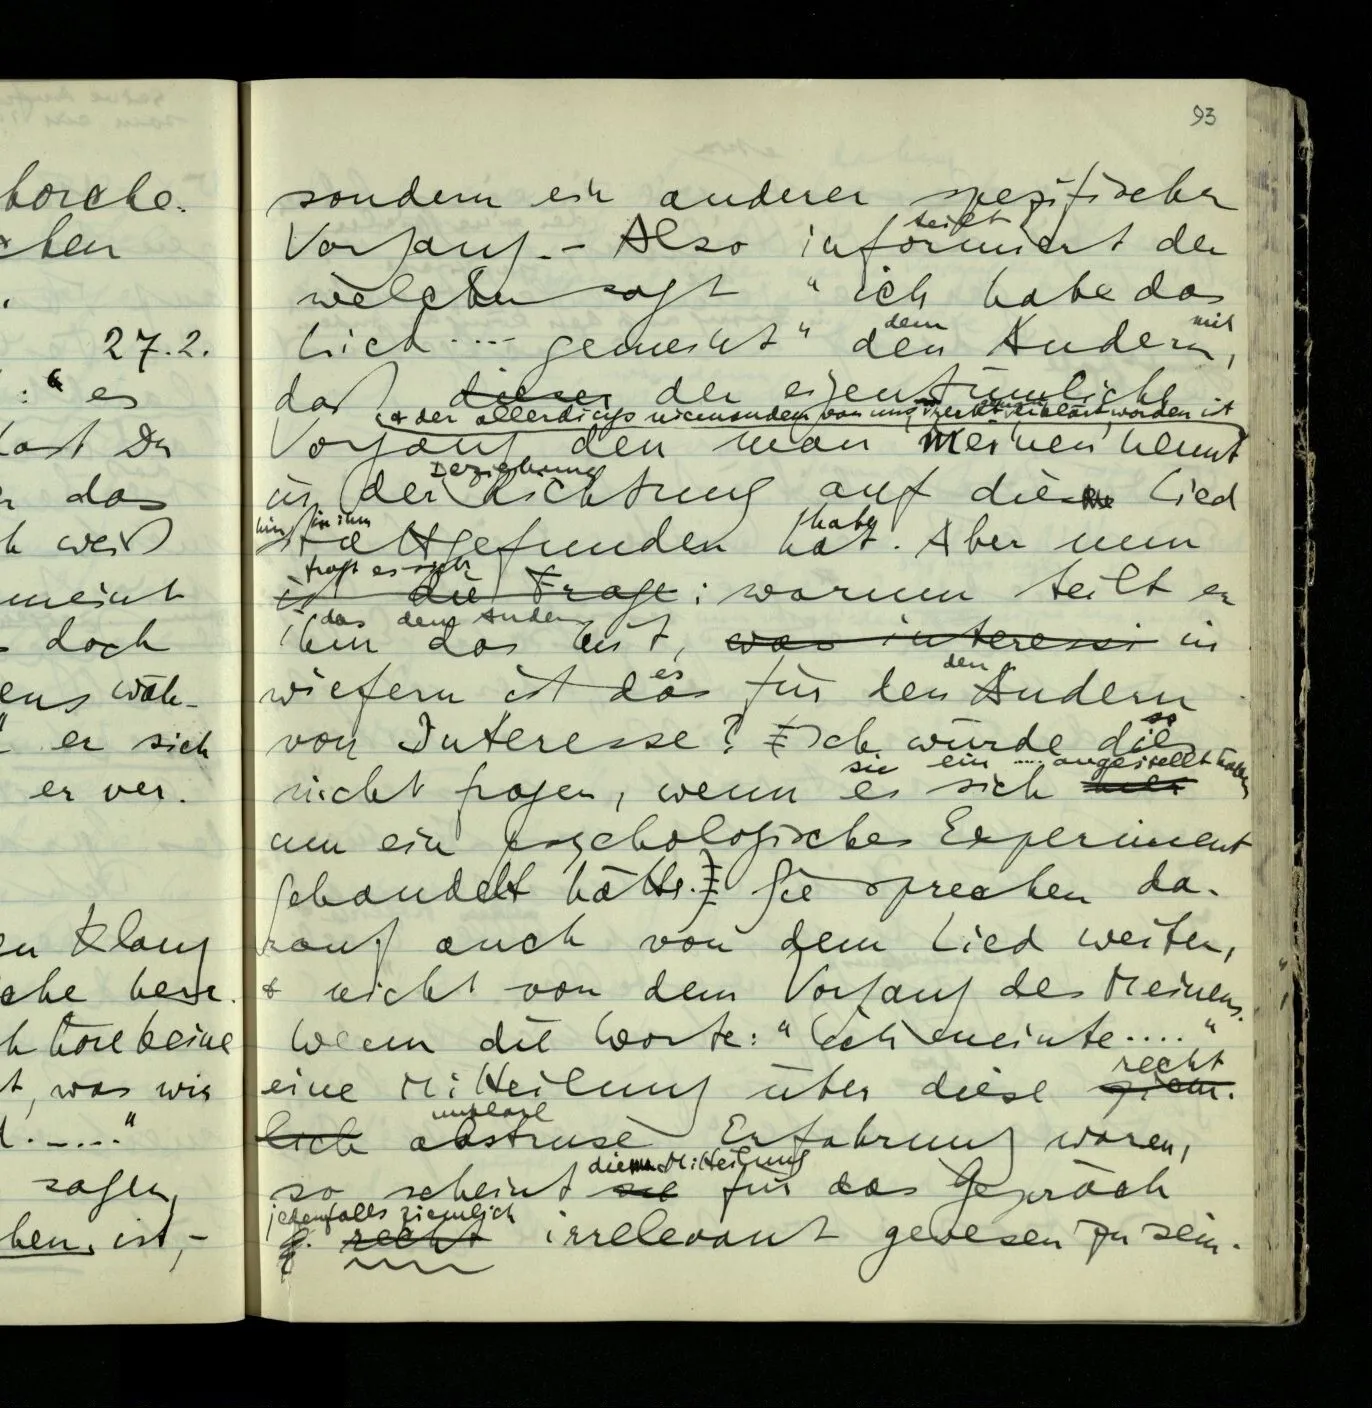 borche.
chen
27.2.
: " es
hast Du
das
h weiß
meint
doch
wäh-
er sich
er ver.
en Klang
che herr.
h höre keine
t, was wir
.–..."
sagen,
hen, ist, –
93
sondern ein anderer spezifischer
teilt
Vorgang. – Also informiert der
welcher sagt "ich habe das
dem mit
Lied .... gemeint" den Andern,
daß dieser der eigentümliche
& der allerdings niemandem von uns erklärt worden ist
Vorgang den man Meinen nennt
Beziehung
in der Richtung auf dieses Lied
hin in ihm habe
stattgefunden hat. Aber nun
fragt es sich
ist die Frage: warum teilt er
das dem Andern
ihm das mit, was interessi in
es den
wiefern ist das für den Andern
von Interesse? Ich würde dies
so
sie ein .... angestellt hätten
nicht fragen, wenn es sich hier
um ein psychologisches Experiment
gehandelt hätte. Sie sprechen da-
rauf auch von dem Lied weiter,
& nicht von dem Vorgang des Meinens.
Wenn die Worte: "Ich meinte ...."
recht
eine Mitteilung über diese ziem-
unklare
lich abstruse Erfahrung waren,
diese Mitteilung
so scheint sie für das Gespräch
jedenfalls ziemlich
recht irrelevant gewesen zu sein.